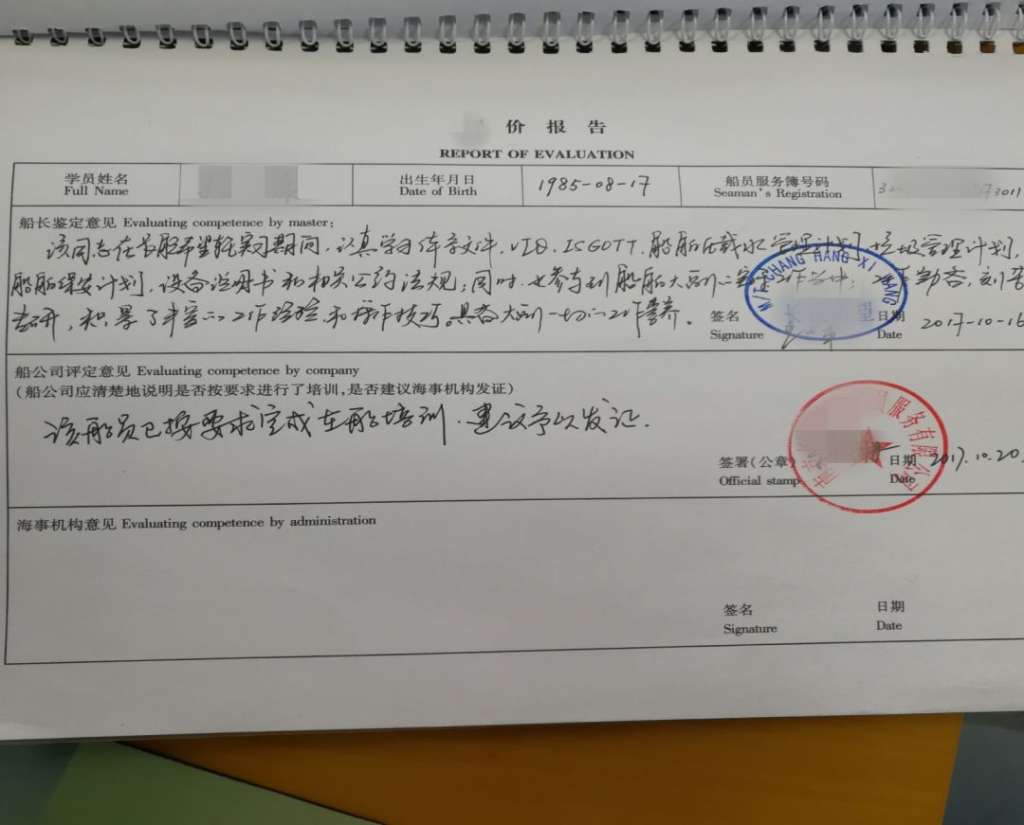 价 报 告
REPORT OF EVALUATION
学员姓名
Full Name
出生年月日
Date of Birth
1985-08-17
船员服务簿号码
Seaman's Registration
3
3011
船长鉴定意见 Evaluating competence by master:
该同志在本船 实习期间,认真学习体系文件、VIQ、ISGOTT、船舶压载水管理计划、垃圾管理计划、
船舶保安计划、设备说明书和相关公约法规;同时,也参与到船舶大副 工作当中; 勤奋,刻苦
钻研,积累了丰富的工作经验和操作技巧。具备大副一切的工作素养。
M/T CHANG HANG XI WANG
签名
Signature
日期
Date
2017-10-16
船公司评定意见 Evaluating competence by company
(船公司应清楚地说明是否按要求进行了培训,是否建议海事机构发证)
该船员已按要求完成在船培训.建议予以发证.
服务有限公司
签署(公章)
Official stamp
日期
Date
2017.10.20
海事机构意见 Evaluating competence by administration
签名
Signature
日期
Date